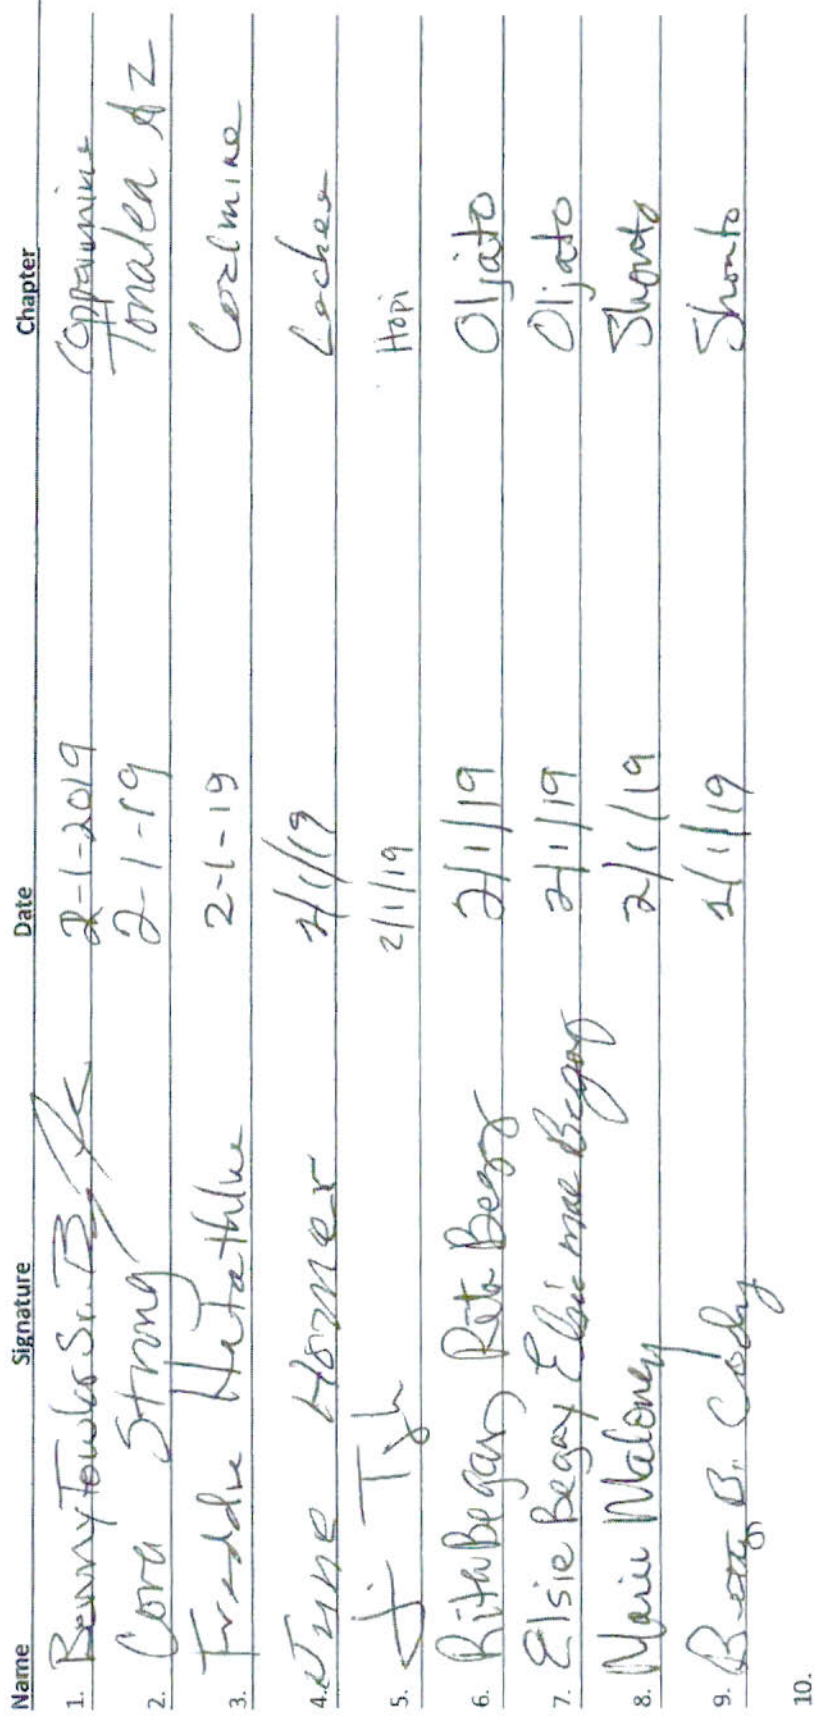 Name Signature Date Chapter
1. Benny Fowler Sr. 2-1-2019 Coppermine
2. Cora Strong 2-1-19 Tonalea AZ
3. Freddie Hatathlie 2-1-19 Coalmine
4. June Homer 2/1/19 Lechee
5. 2/1/19 Hopi
6. Rita Begay Rita Begay 2/1/19 Oljato
7. Elsie Begay Elsie mae Begay 2/1/19 Oljato
8. Marie Maloney 2/1/19 Shonto
9. Betty B. Cody 2/1/19 Shonto
10.